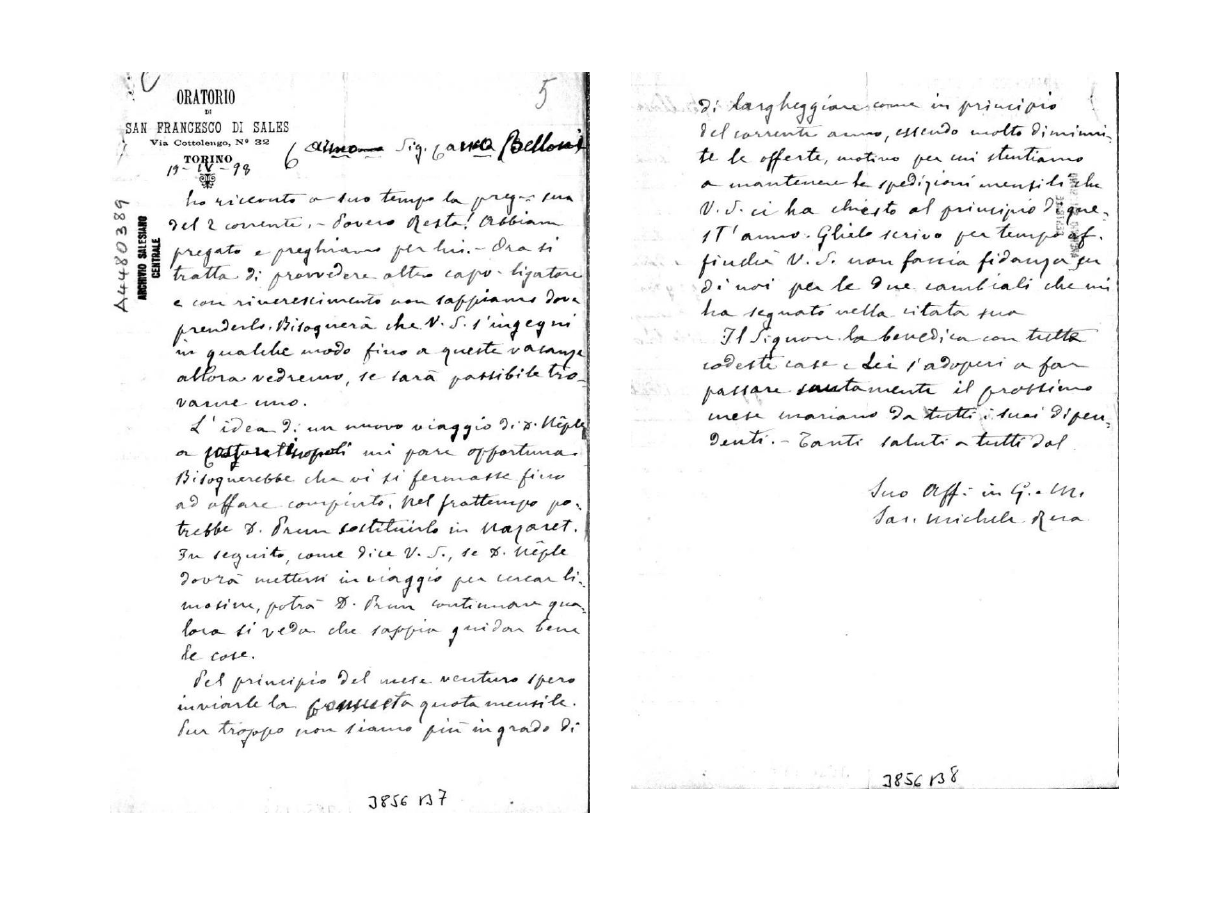 5
ORATORIO
DI
SAN FRANCESCO DI SALES
Via Cottolengo, Nº 32
TORINO
19-IV-98
Sig. Belloni
A4480389
ARCHIVIO SALESIANO
CENTRALE
ho ricevuto a suo tempo la preg. sua
del 2 corrente. - Povero Resta! Abbiam
pregato e preghiamo per lui. - Ora si
tratta di provvedere altro capo-ligatore
e con rincrescimento non sappiamo dove
prenderlo. Bisognerà che V. S. s'ingegni
in qualche modo fino a queste vacanze
allora vedremo, se sarà possibile tro-
varne uno.
L'idea di un nuovo viaggio di D. Nèple
a Costantinopoli mi pare opportuna.
Bisognerebbe che vi si fermasse fino
ad affare compiuto. Nel frattempo po-
trebbe D. Prun sostituirlo in Nazaret.
In seguito, come dice V. S., se D. Nèple
dovrà mettersi in viaggio per cercar li-
mosine, potrà D. Prun continuare qua-
lora si veda che sappia guidar bene
le cose.
Pel principio del mese venturo spero
inviarle la consueta quota mensile.
Pur troppo non siamo più in grado di
3856 B7
di largheggiare come in principio
del corrente anno, essendo molto diminui-
te le offerte, motivo per cui stentiamo
a mantenere le spedizioni mensili che
V. S. ci ha chiesto al principio di que-
st'anno. Glielo scrivo per tempo af-
finchè V. S. non faccia fidanza su
di noi per le due cambiali che mi
ha segnato nella citata sua
Il Signor la benedica con tutte
codeste case e Lei s'adoperi a far
passare santamente il prossimo
mese mariano da tutti i suoi dipen-
denti. - Tanti saluti a tutti dal
Suo Aff. in G. e M.
Sac. Michele Rua
3856 B8